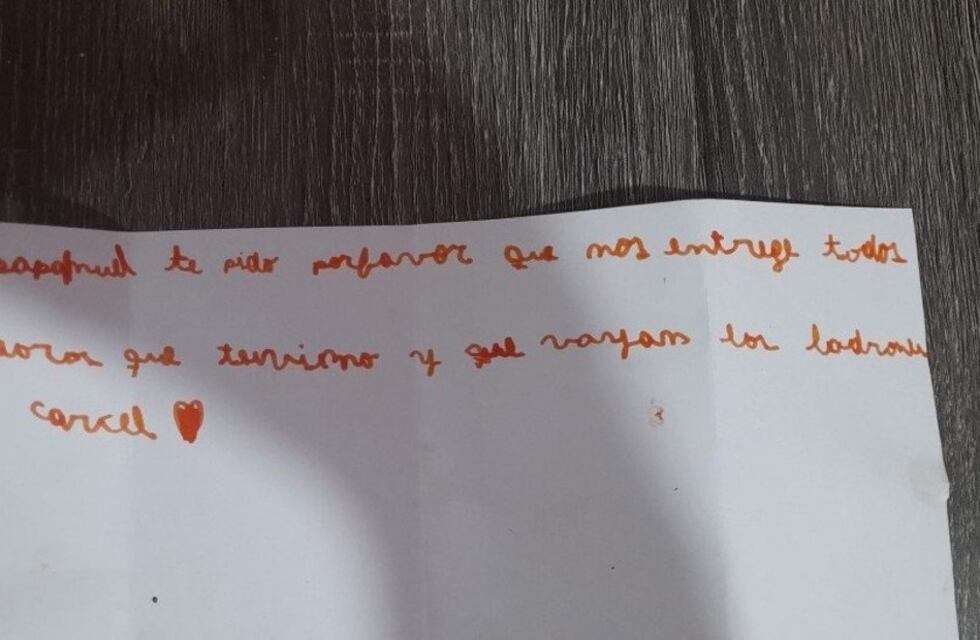 papapnuel te pido porfavor que nos entrege todos
que tenviamo y que vayan los ladrone
carcel